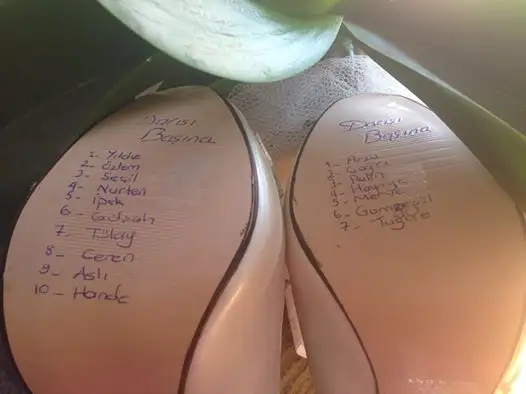 Darısı
Başına
1- Yıldız
2- Özlem
3- Seçil
4- Nurten
5- İpek
6- Gülşah
7- Tülay
8- Ceren
9- Aslı
10- Hande
Darısı
Başına
1- Arzu
2- Çağrı
3- Pelin
4-
5- Merve
6- Gamzegül
7- Tuğçe